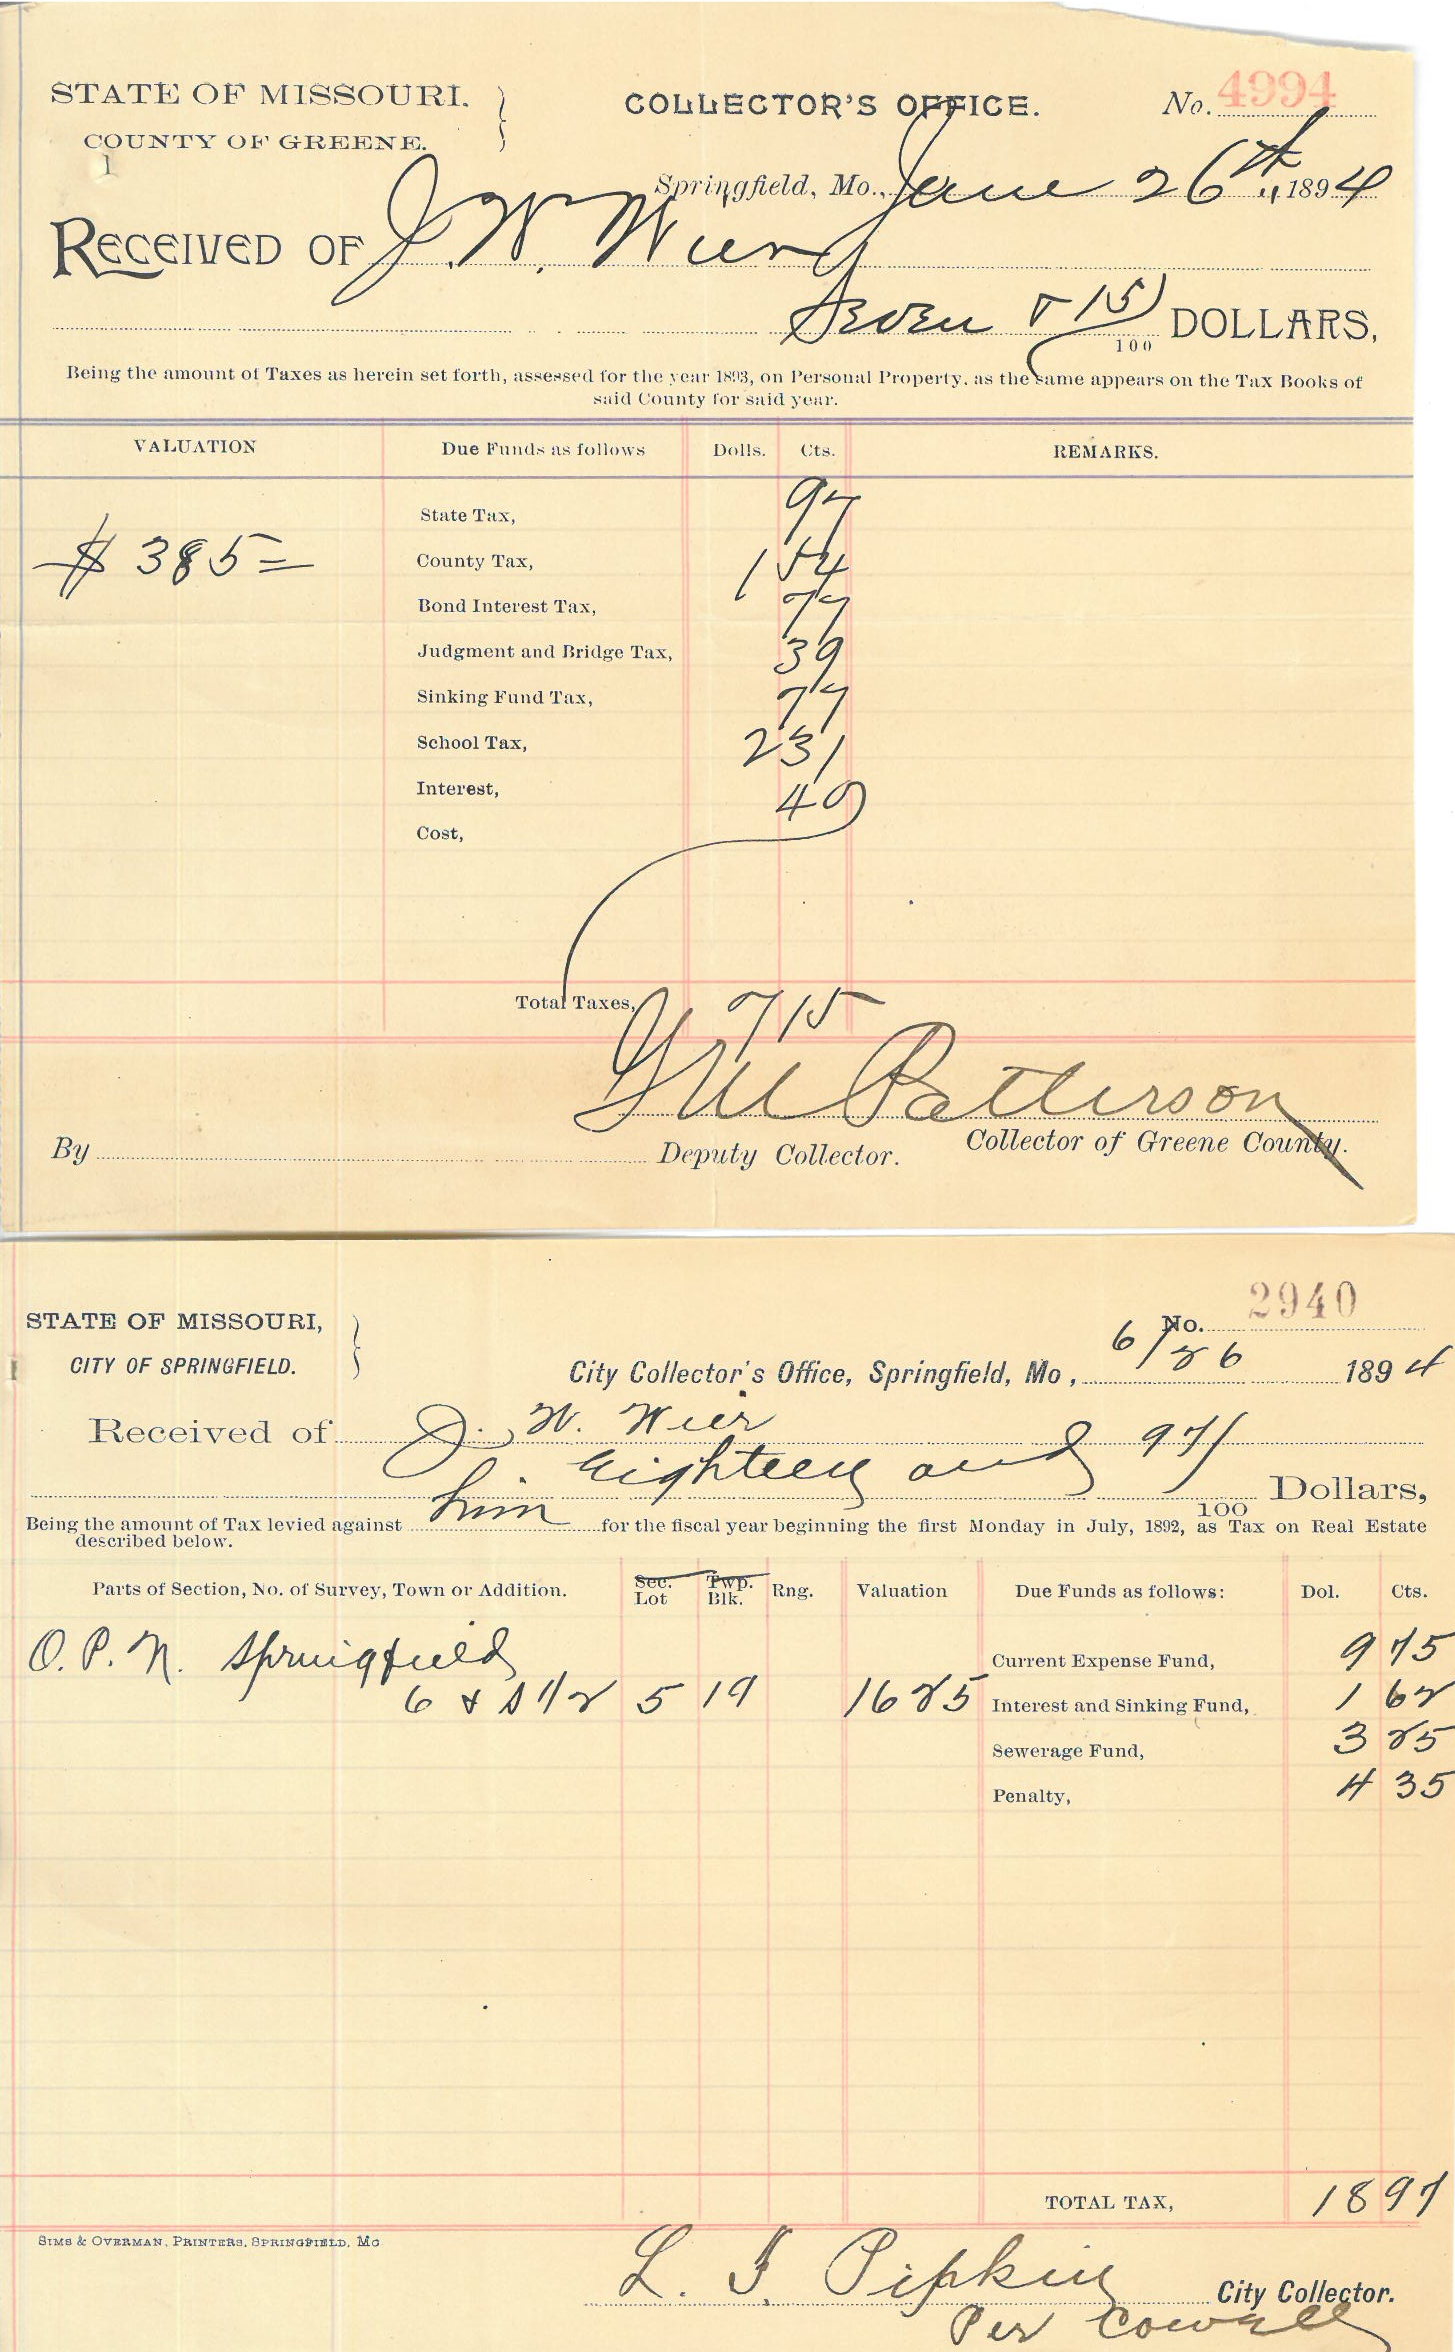 STATE OF MISSOURI.
COUNTY OF GREENE.
1
COLLECTOR'S OFFICE.
No. 4994
Springfield, Mo., June 26th, 1894
RECEIVED OF J. W. Wier
Seven & 15/100 DOLLARS,
Being the amount of Taxes as herein set forth, assessed for the year 1893, on Personal Property, as the same appears on the Tax Books of
said County for said year.
VALUATION Due Funds as follows Dolls. Cts. REMARKS.
State Tax, 97
$ 385= County Tax, 1 54
Bond Interest Tax, 77
Judgment and Bridge Tax, 39
Sinking Fund Tax, 77
School Tax, 2 31
Interest, 40
Cost,
Total Taxes, 7 15
G M Patterson
By Deputy Collector. Collector of Greene County.
STATE OF MISSOURI,
CITY OF SPRINGFIELD.
No. 2940
City Collector's Office, Springfield, Mo, 6/26 1894
Received of J. W. Wier
Eighteen and 97/100 Dollars,
Being the amount of Tax levied against him for the fiscal year beginning the first Monday in July, 1892, as Tax on Real Estate
described below.
Parts of Section, No. of Survey, Town or Addition. Sec. Lot Twp. Blk. Rng. Valuation Due Funds as follows: Dol. Cts.
O. P. N. Springfield Current Expense Fund, 9 75
6 & S 1/2 5 19 1625 Interest and Sinking Fund, 1 62
Sewerage Fund, 3 25
Penalty, 4 35
TOTAL TAX, 18 97
SIMS & OVERMAN, PRINTERS, SPRINGFIELD, MO
L. F. Pipkin City Collector.
Per Cowell